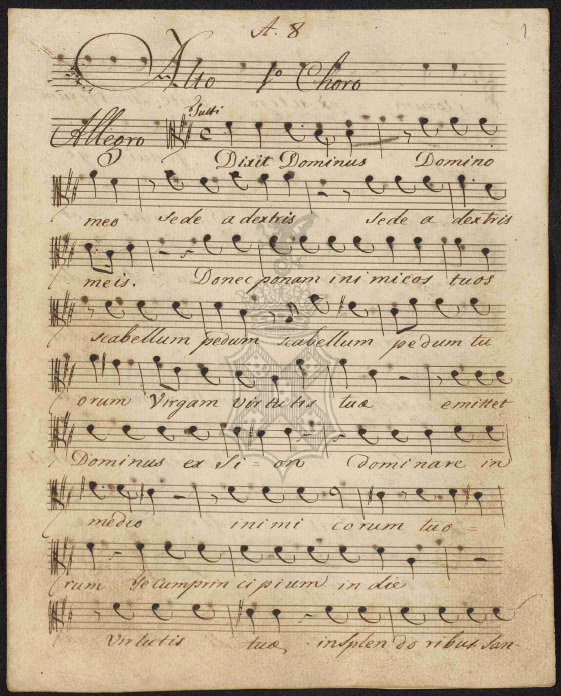 A. 8
1
Alto 1º Choro
Tutti
Allegro
Dixit Dominus Domino
meo sede a dextris sede a dextris
meis. Donec ponam inimicos tuos
scabellum pedum scabellum pedum tu
orum Virgam virtutis tuæ emittet
Dominus ex Si = on dominare in
medio inimi corum tuo =
rum Tecumprin cipium in die
virtutis tuæ, insplen do ribus San-